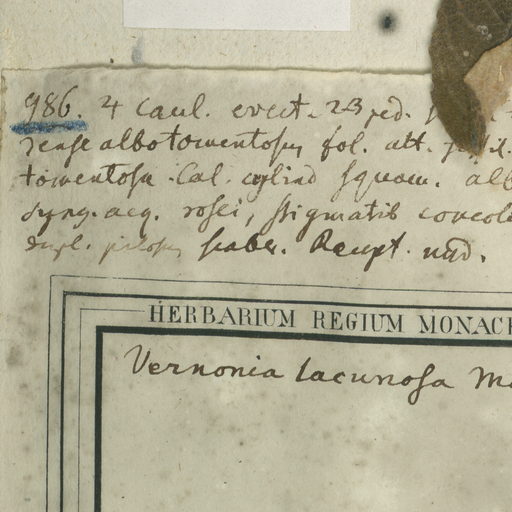 986. ♃ Caul. erect. 2-3 ped.
dense albotomentosus fol. alt.
tomentosa. Cal. cylind squam. alb
Syng. aeq. rosei, stigmatib concolo
dupl. pilosus scaber. Recept. nud.
HERBARIUM REGIUM MONAC
Vernonia lacunosa M